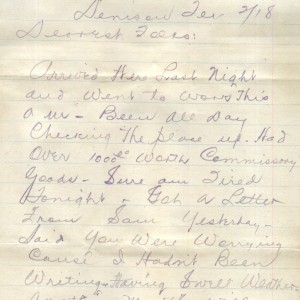 Denison Tex 2/18
Dearest
Arrived here Last Night
and Went to Work This
a m - Been all Day
Checking The place up. Had
Over 1000 00 Worth Commissary
Goods - Sure am Tired
Tonight - Got a Letter
From Sam Yesterday -
Said You Were Worrying
Cause I Hadn't Been
Writing. Having Swell Weather